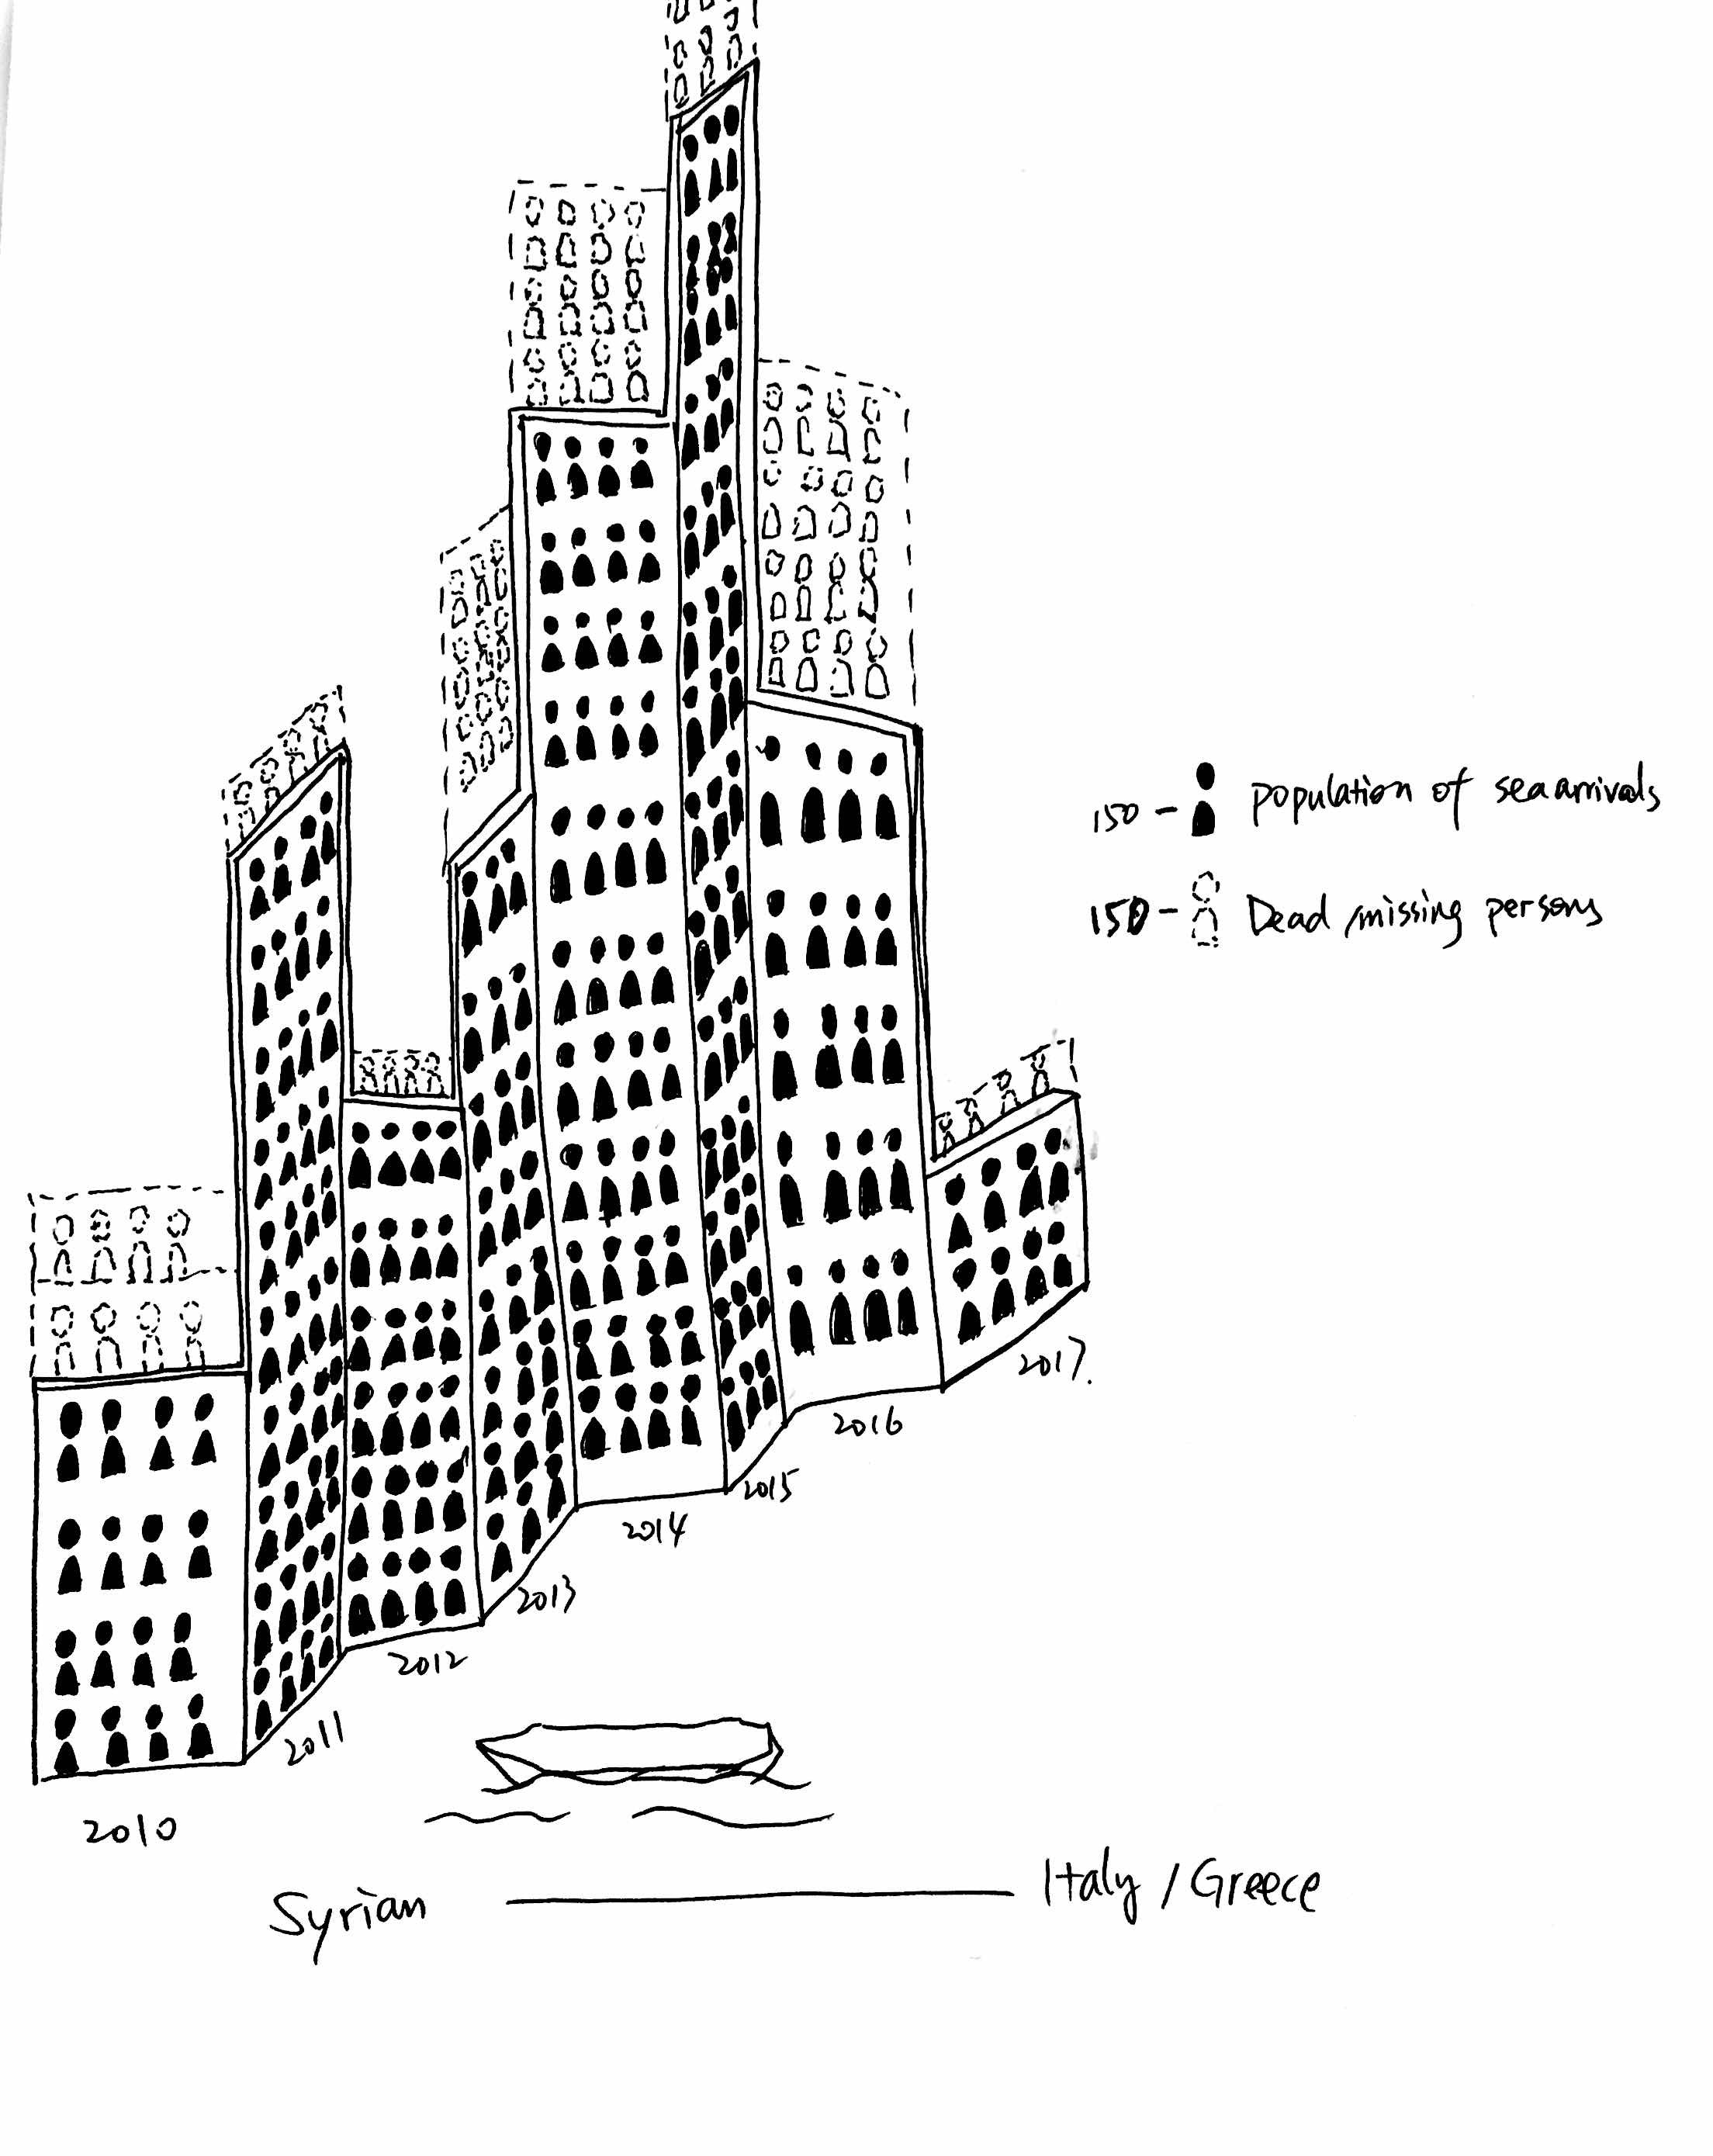 150 - population of sea arrivals
150 - Dead / missing persons
2017.
2016
2015
2014
2013
2012
2011
2010
Syrian
Italy / Greece